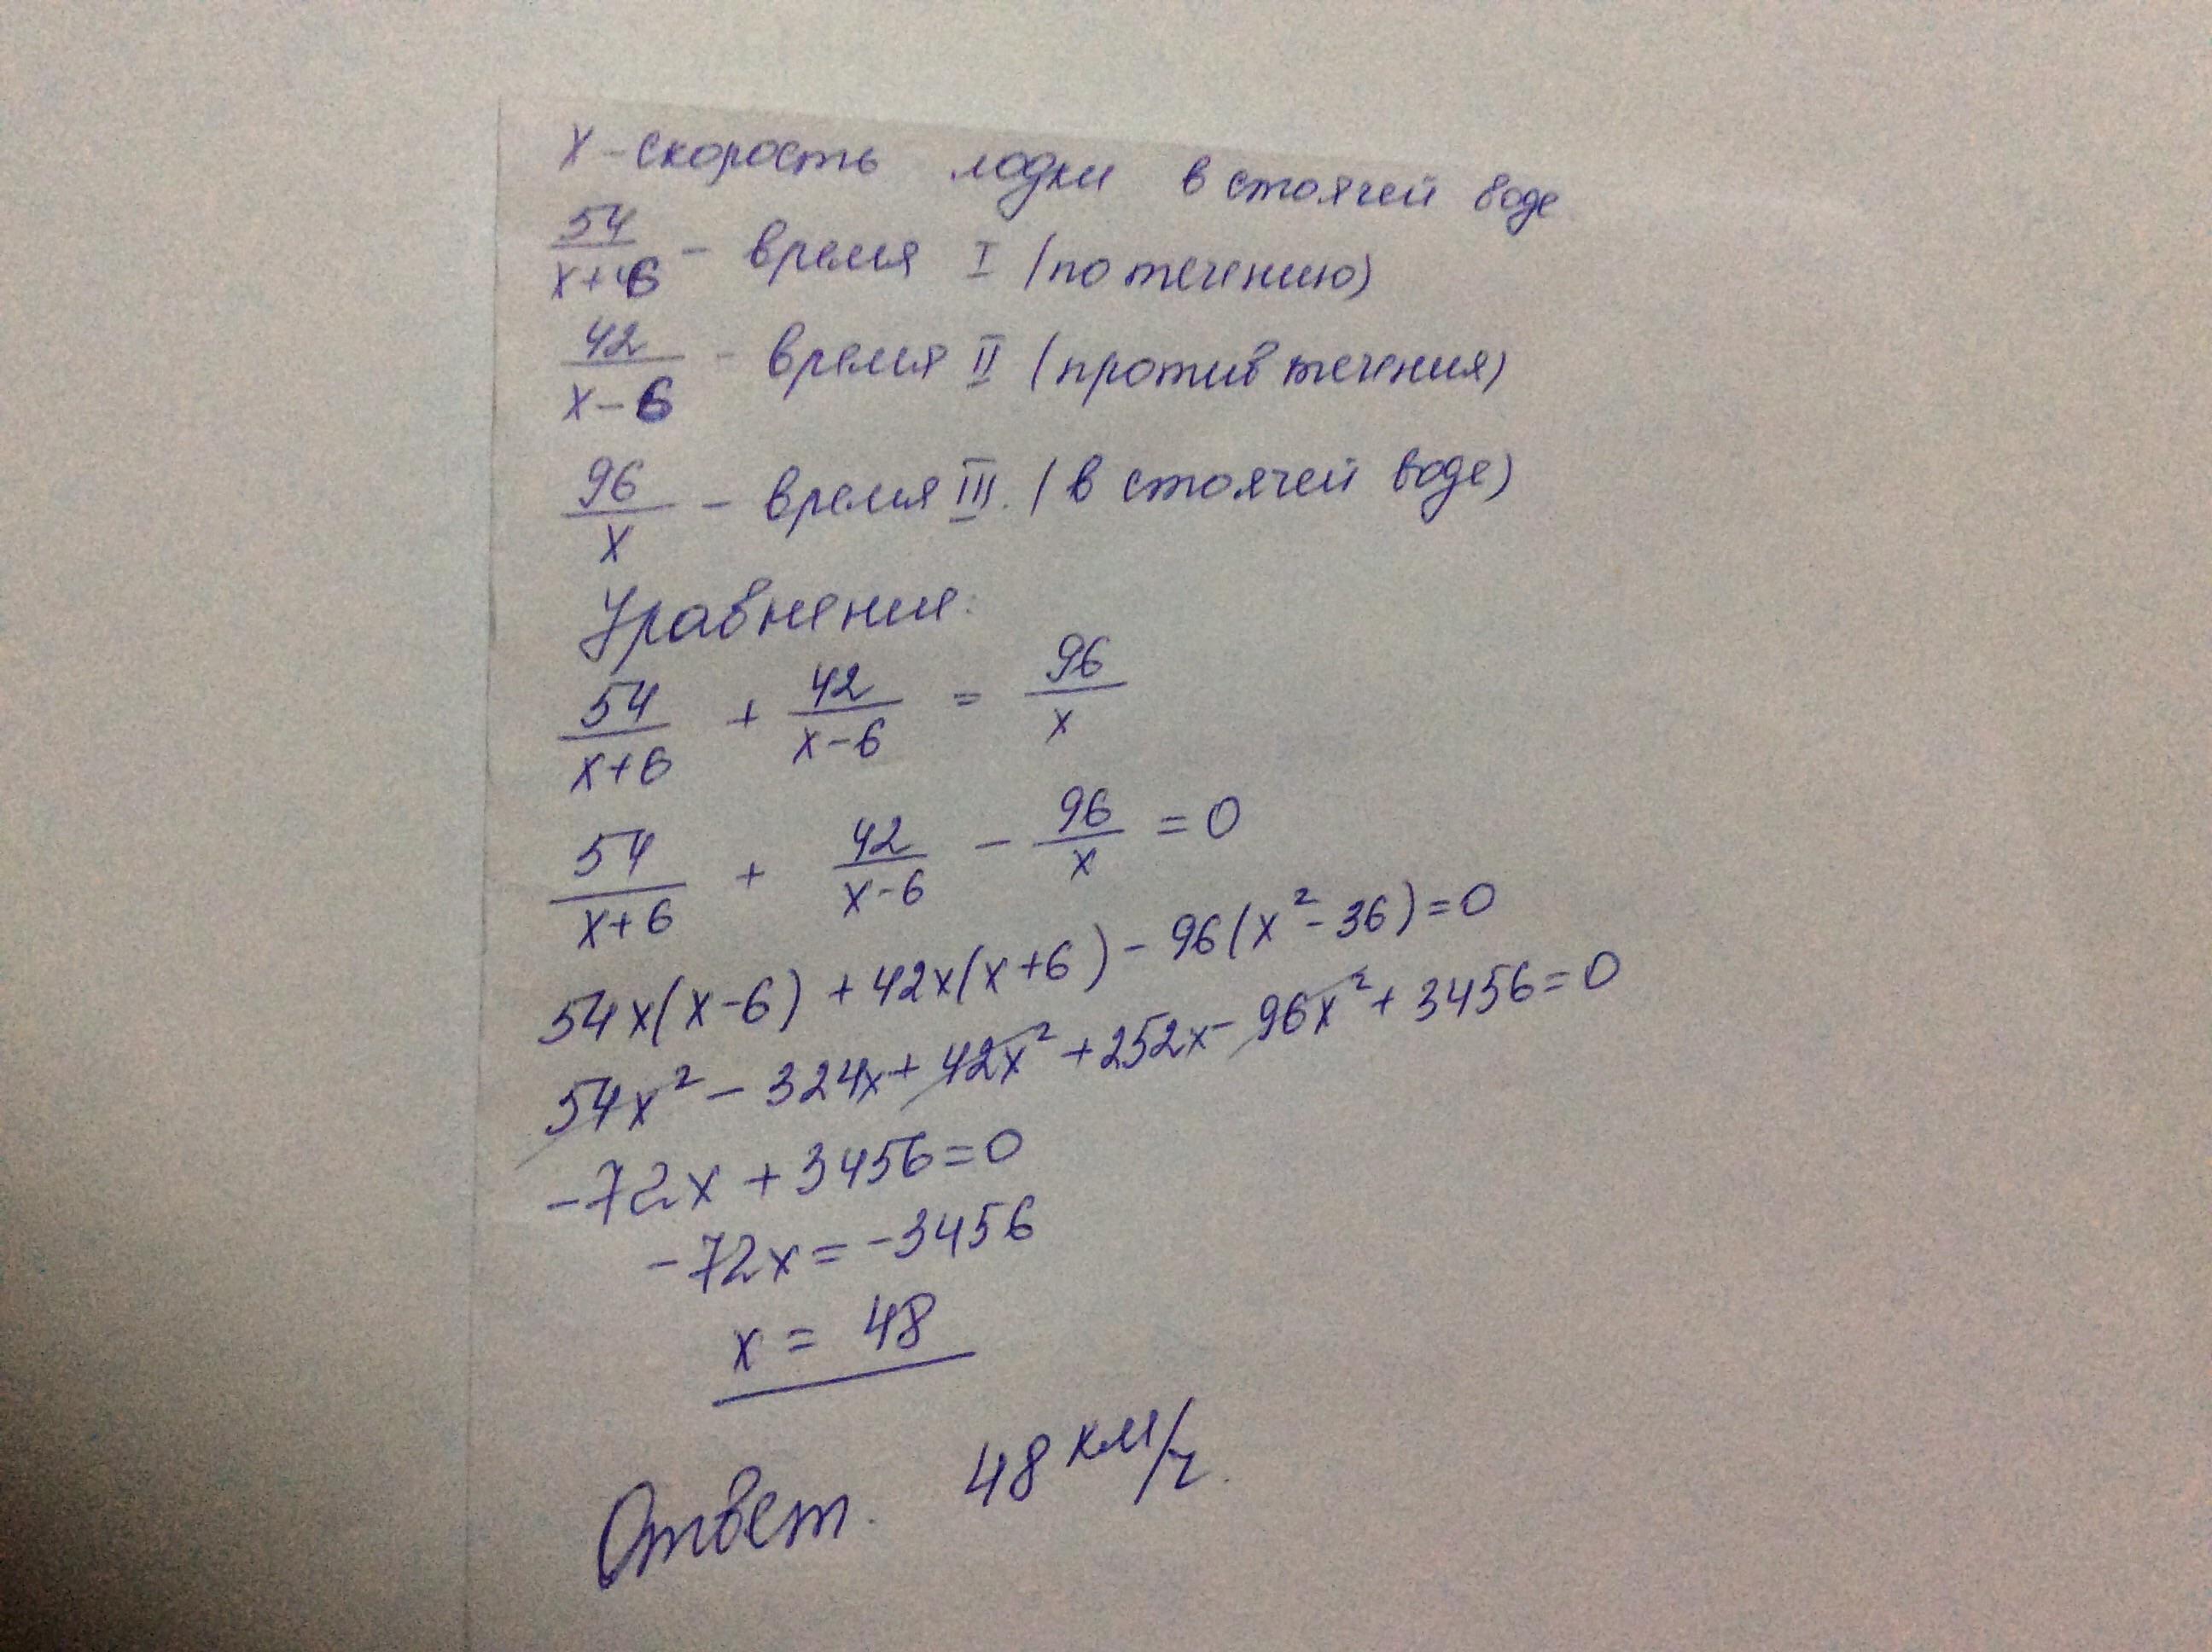 x - скорость лодки в стоячей воде
54/(x+6) - время I (по течению)
42/(x-6) - время II (против течения)
96/x - время III. (в стоячей воде)
Уравнение:
54/(x+6) + 42/(x-6) = 96/x
54/(x+6) + 42/(x-6) - 96/x = 0
54x(x-6) + 42x(x+6) - 96(x² - 36) = 0
54x² - 324x + 42x² + 252x - 96x² + 3456 = 0
-72x + 3456 = 0
-72x = -3456
x = 48
Ответ. 48 км/ч.